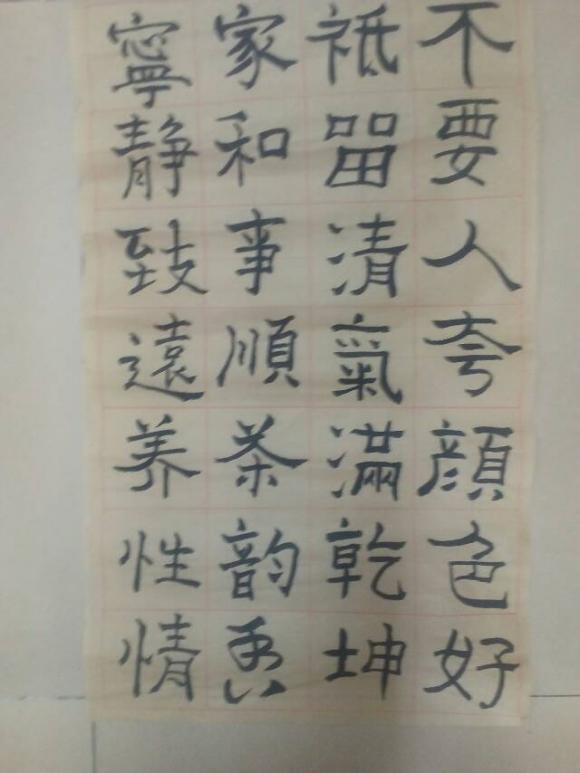 不要人夸顏色好
祗留清氣滿乾坤
家和事順茶韵香
寧静致遠养性情